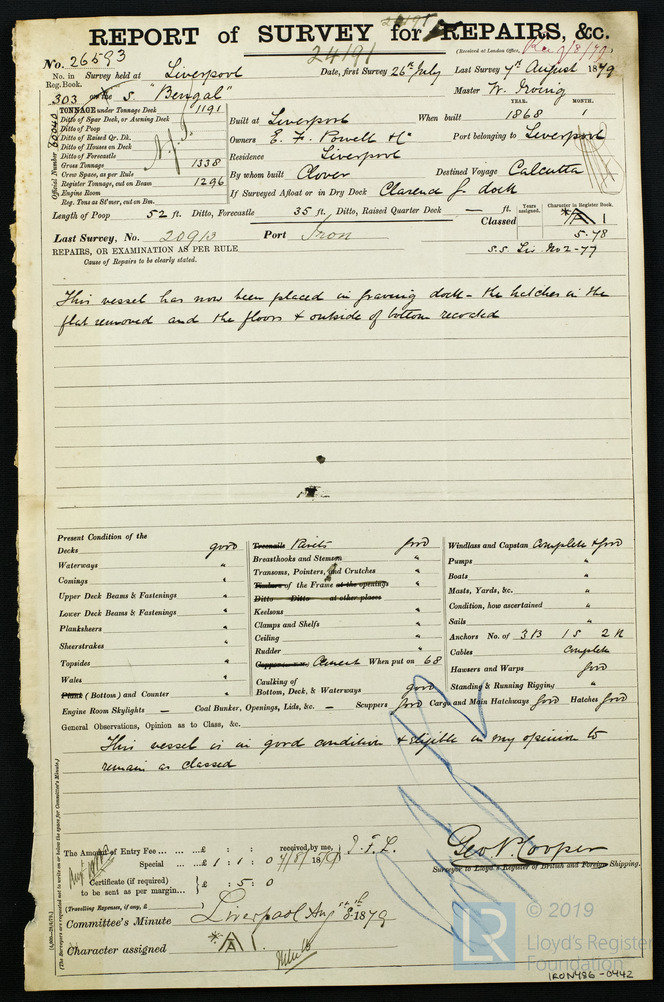 REPORT of SURVEY for REPAIRS, &c.
24191
(Received at London Office,
No. 26593
No. in Reg. Book.
Survey held at Liverpool
Date, first Survey 26th July Last Survey 7th August 1879
303 on the s. "Bengal"
Master W. Irving
TONNAGE under Tonnage Deck 1191
Ditto of Spar Deck, or Awning Deck
Ditto of Poop
Ditto of Raised Qr. Dk.
Ditto of Houses on Deck
Ditto of Forecastle
Gross Tonnage 1338
Crew Space, as per Rule
Register Tonnage, cut on Beam 1296
Engine Room
Reg. Tons as St'mer, cut on Bm.
Official Number 60040
YEAR. MONTH.
Built at Liverpool When built 1868 1
Owners E. F. Powell & Co Port belonging to Liverpool
Residence Liverpool
By whom built Clover Destined Voyage Calcutta
If Surveyed Afloat or in Dry Dock Clarence G. dock
Length of Poop 52 ft. Ditto, Forecastle 35 ft. Ditto, Raised Quarter Deck — ft.
Years assigned. Character in Register Book.
Classed A 1
5-78
Last Survey, No. 20913 Port Iron
S.S. Li. No2-77
REPAIRS, OR EXAMINATION AS PER RULE
Cause of Repairs to be clearly stated.
This vessel has now been placed in graving dock - the hatches in the
flat removed and the floors & outside of bottom recoated
Present Condition of the
Decks good
Waterways "
Comings "
Upper Deck Beams & Fastenings "
Lower Deck Beams & Fastenings "
Planksheers "
Sheerstrakes "
Topsides "
Wales "
Plank (Bottom) and Counter "
Treenails Rivets good
Breasthooks and Stemson "
Transoms, Pointers, and Crutches "
Timbers of the Frame at the openings "
Ditto Ditto at other places
Keelsons "
Clamps and Shelfs "
Ceiling "
Rudder "
Cement When put on 68
Caulking of Bottom, Deck, & Waterways good
Windlass and Capstan Complete & good
Pumps "
Boats "
Masts, Yards, &c. "
Condition, how ascertained "
Sails "
Anchors No. of 3 B 1 S 2 K
Cables Complete
Hawsers and Warps good
Standing & Running Rigging "
Engine Room Skylights — Coal Bunker, Openings, Lids, &c. — Scuppers good Cargo and Main Hatchways good Hatches good
General Observations, Opinion as to Class, &c.
This vessel is in good condition & eligible in my opinion to
remain as classed
The Amount of Entry Fee ... ... ...£ : : received by me,
Special ... ...£ 1 : 1 : 0 7/8/1879
Certificate (if required) to be sent as per margin... £ : 5 : 0
(Travelling Expenses, if any, £ )
Geo P. Cooper
Surveyor to Lloyd's Register of British and Foreign Shipping.
Committee's Minute Liverpool Aug 8th 1879
Character assigned A 1.
(The Surveyors are requested not to write on or below the space for Committee's Minute.)
© 2019
LR
Lloyd's Register
Foundation
IRON486-0442